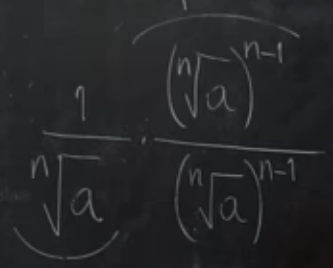 \frac{1}{\sqrt[n]{a}} \cdot \frac{(\sqrt[n]{a})^{n-1}}{(\sqrt[n]{a})^{n-1}}